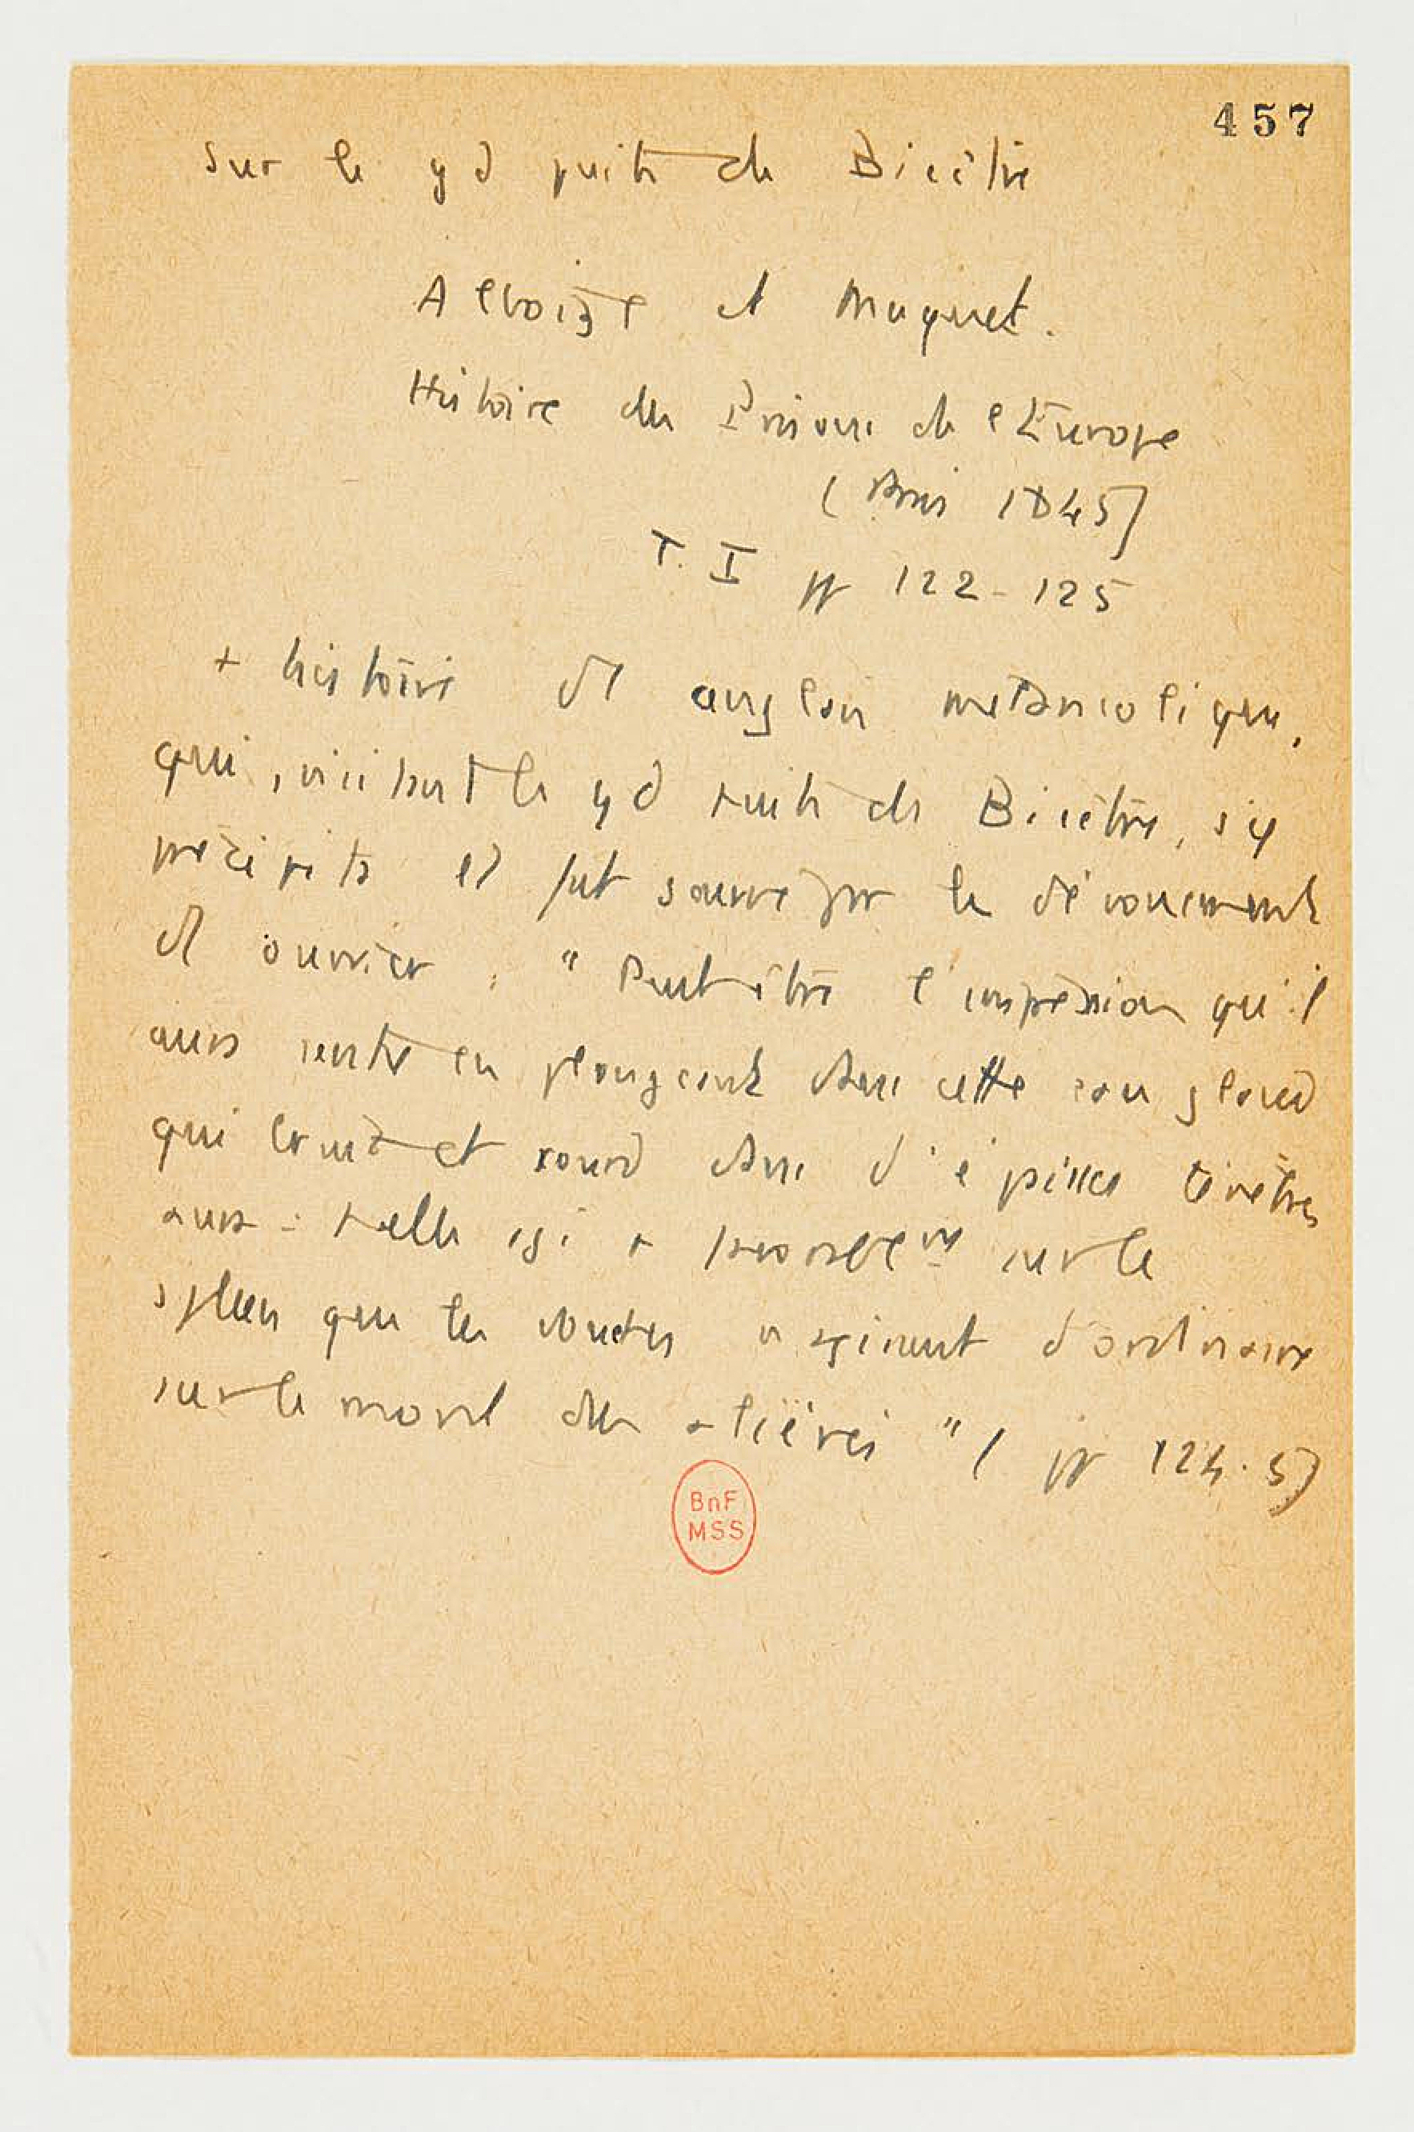 457
Sur le gd puits de Bicêtre
Alboize et Maquet.
Histoire des Prisons de l'Europe
(Paris 1845)
T. I pp 122-125
+ histoire d'1 anglais mélancolique,
qui, visitant le gd puits de Bicêtre, s'y
précipita et fut sauvé par le dévouement
d'1 ouvrier. "Peut-être l'impression qu'il
aura sentie en plongeant dans cette eau glacée
qui
et sourd dans d'épaisses ténèbres
aura-t-elle agi + favorablemt sur le
spleen que les douches n'agissent d'ordinaire
sur le moral des aliénés" (pp 124.5)
BnF
MSS